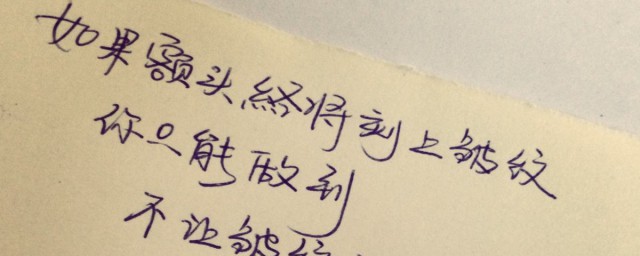 如果额头终将刻上皱纹
你只能做到
不让皱纹